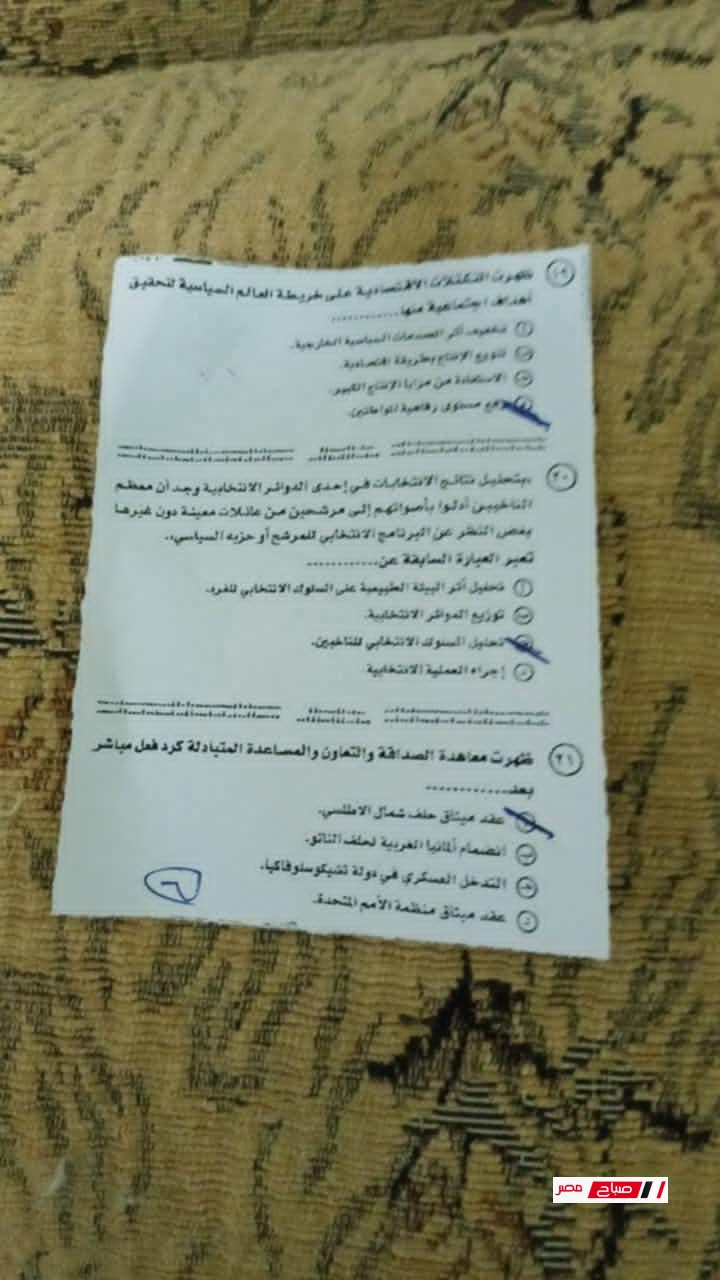 ١٩ ظهرت التكتلات الاقتصادية على خريطة العالم السياسية لتحقيق
أهداف اجتماعية منها............
أ تخفيف أثر الصدمات السياسية الخارجية.
ب تنويع الإنتاج بطريقة اقتصادية.
ج الاستفادة من مزايا الإنتاج الكبير.
رفع مستوى رفاهية المواطنين.
٢٠ ،بتحليل نتائج الانتخابات في إحدى الدوائر الانتخابية وجد أن معظم
الناخبين أدلوا بأصواتهم إلى مرشحين من عائلات معينة دون غيرها
بغض النظر عن البرنامج الانتخابي للمرشح أو حزبه السياسي،.
تعبر العبارة السابقة عن............
أ تحليل أثر البيئة الطبيعية على السلوك الانتخابي للفرد.
ب توزيع الدوائر الانتخابية.
تحليل السلوك الانتخابي للناخبين.
د إجراء العملية الانتخابية
٢١ ظهرت معاهدة الصداقة والتعاون والمساعدة المتبادلة كرد فعل مباشر
بعد............
عقد ميثاق حلف شمال الاطلسي.
ب انضمام ألمانيا الغربية لحلف الناتو.
ج التدخل العسكري في دولة تشيكوسلوفاكيا.
د عقد ميثاق منظمة الأمم المتحدة.
٦
صباح مصر